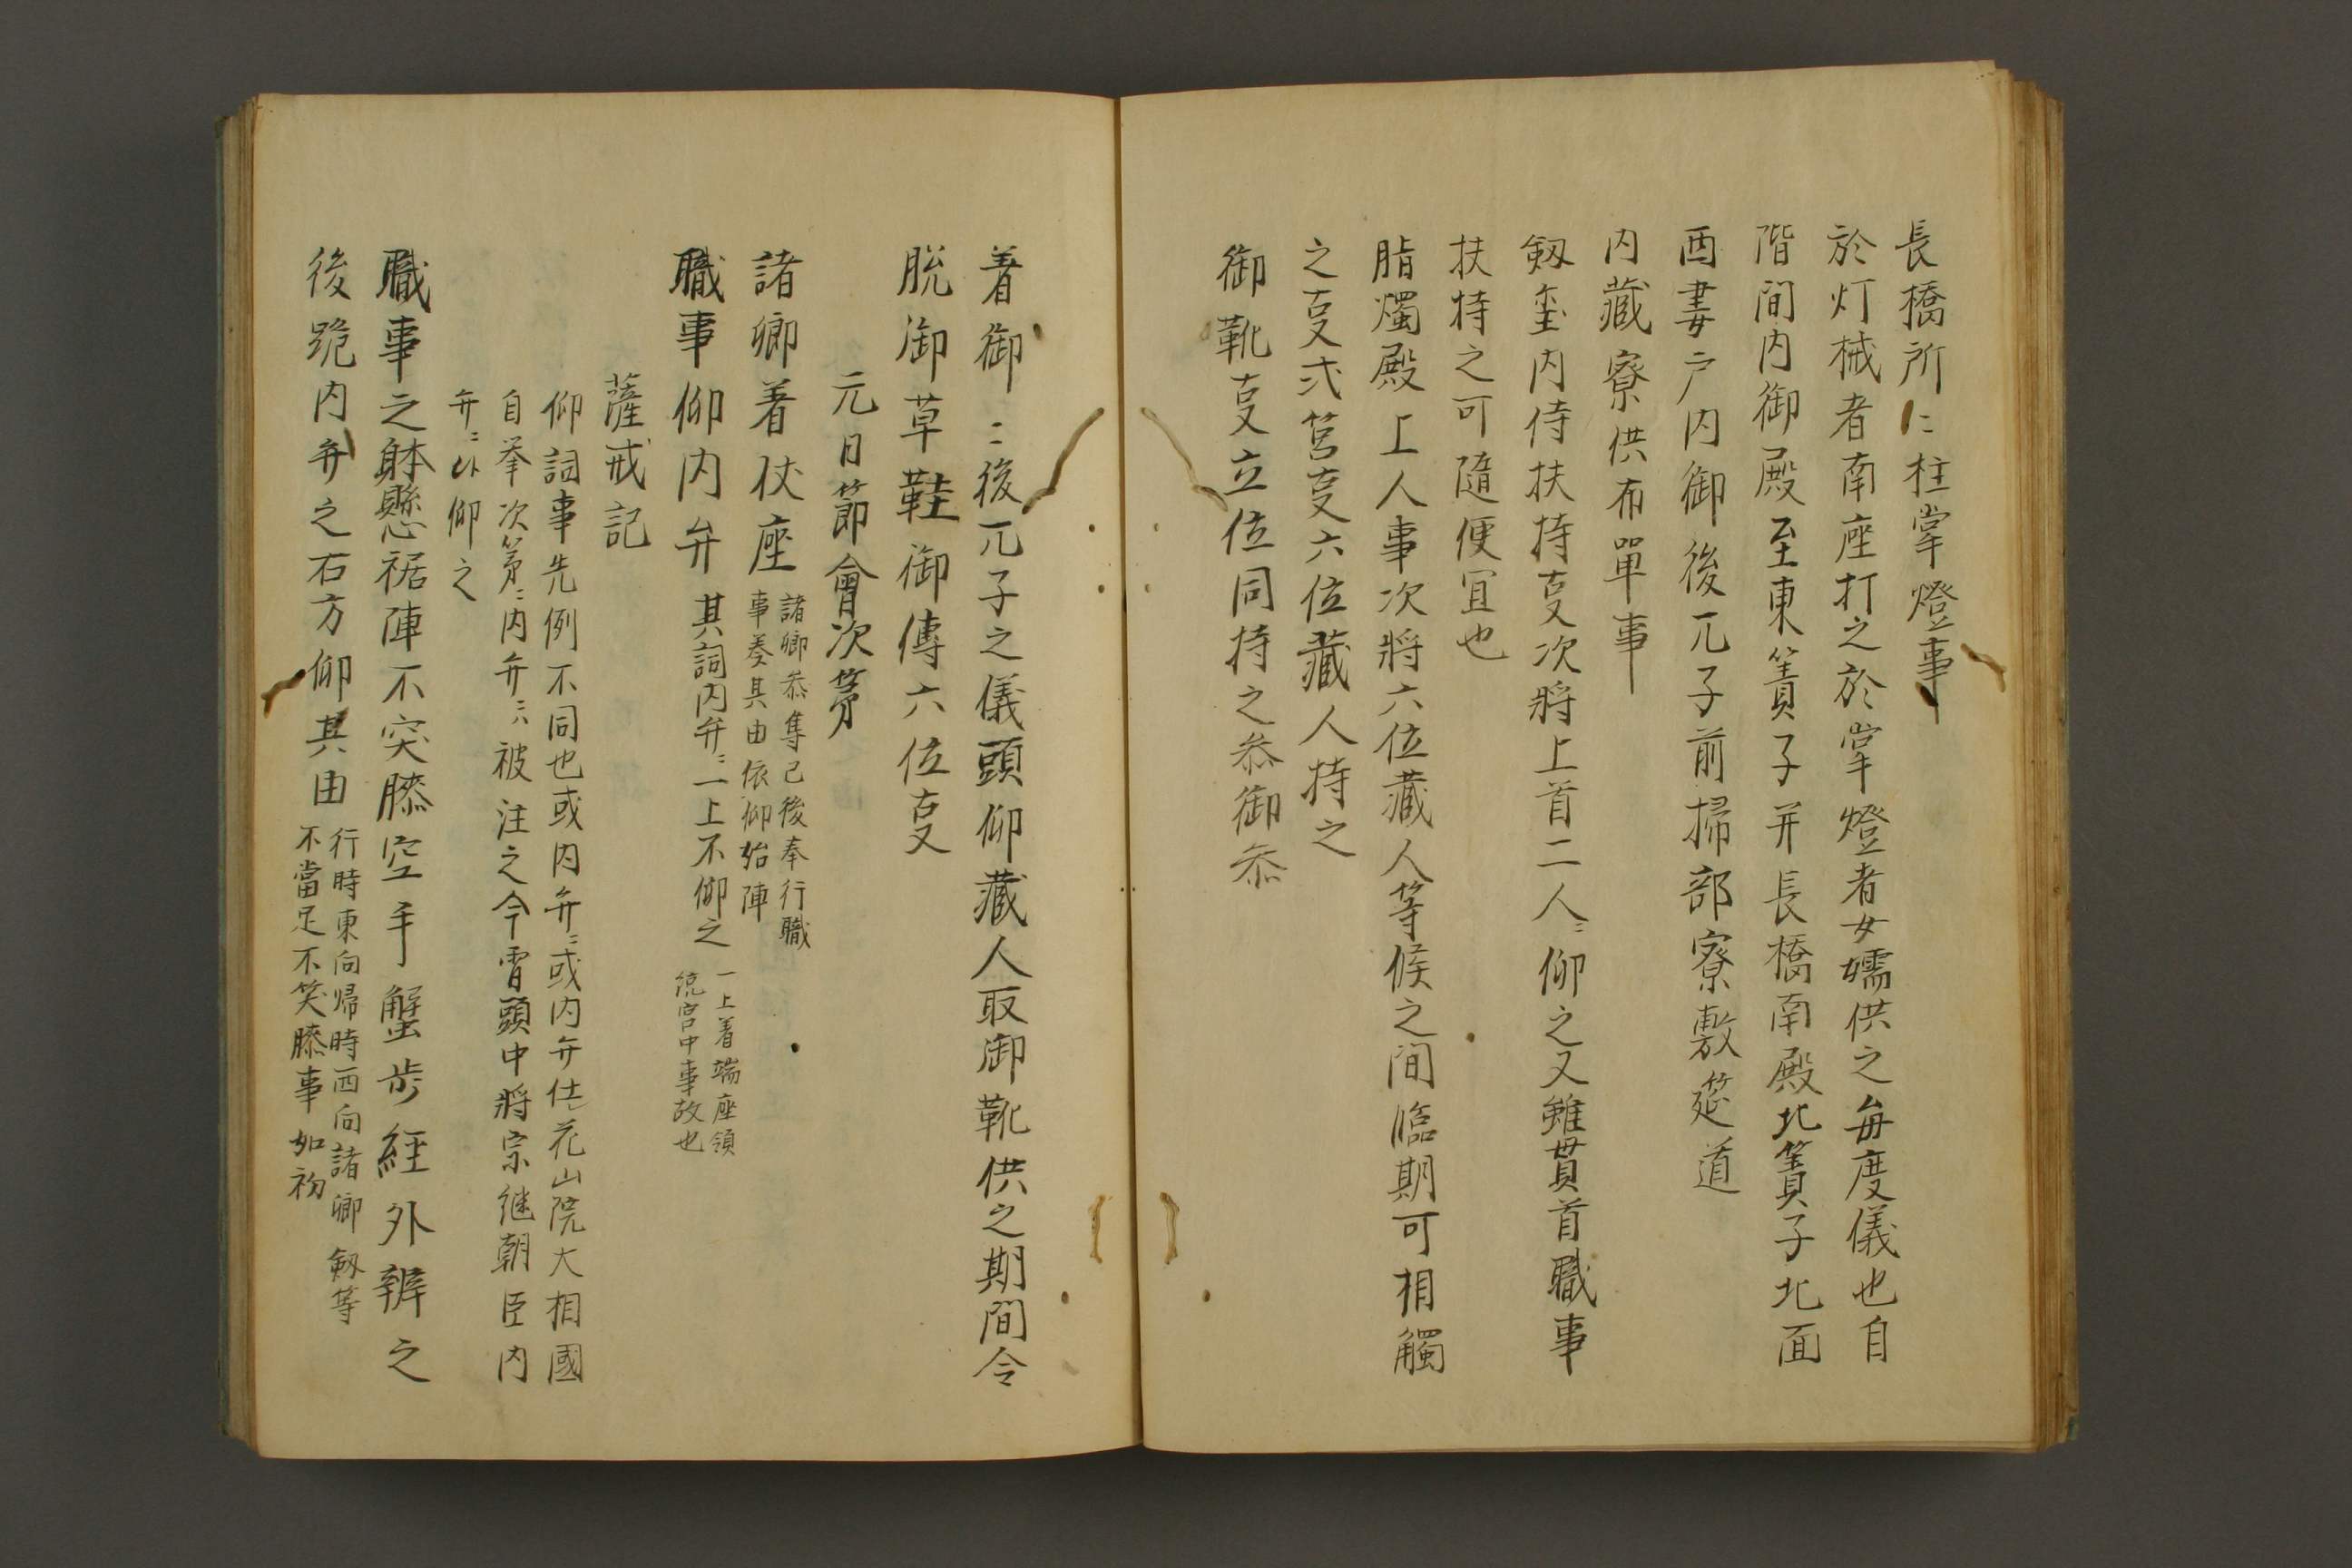 長橋所ニ柱掌燈事
於灯械者南座打之於掌燈者女嬬供之毎度儀也自
階間内御殿至東簀子并長橋南殿北簀子北面
酉妻戸内御後兀子前掃部寮敷筵道
内藏寮供布單事
劔璽内侍扶持叓次将上首二人ニ仰之又雖貫首職事
扶持之可隨便冝也
脂燭殿上人事次将六位藏人等候之間臨期可相觸
之叓式筥叓六位藏人持之
御靴叓立位同持之叅御叅
着御ニ後兀子之儀頭仰藏人取御靴供之期間令
脱御草鞋御傳六位叓
元日節會次第
諸卿着仗座
諸卿叅集己後奉行職
事奏其由依仰始陣
職事仰内弁其詞内弁ニ一上不仰之
一上着端座領
統宮中事故也
薩戒記
仰詞事先例不同也或内弁ニ或内弁仕花山院大相國
自挙次第ニ内弁ニハ被注之今宵頭中将宗継朝臣内
弁ニト仰之
職事之躰懸裾陣不突膝空手蟹歩経外辨之
後跪内弁之右方仰其由
行時東向帰時西向諸卿劔等
不當足不笑膝事如初